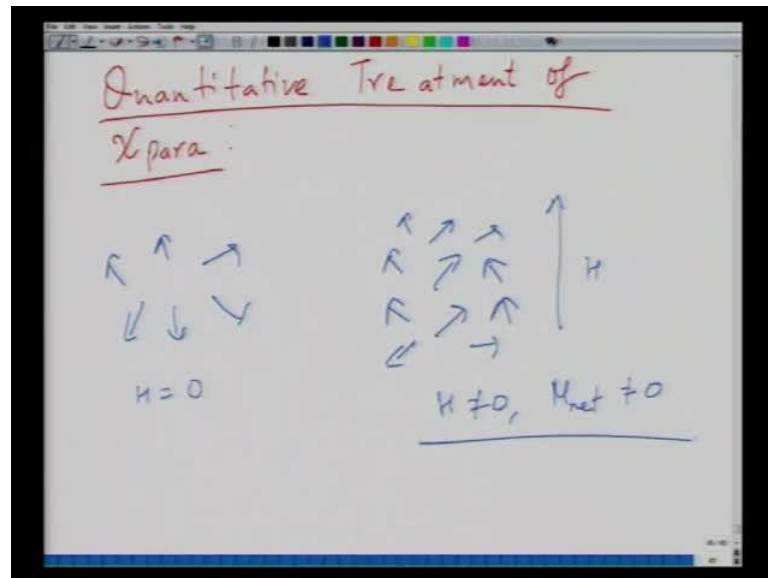 Quantitative Treatment of
χ para :
H
H = 0
H ≠ 0, Mnet ≠ 0